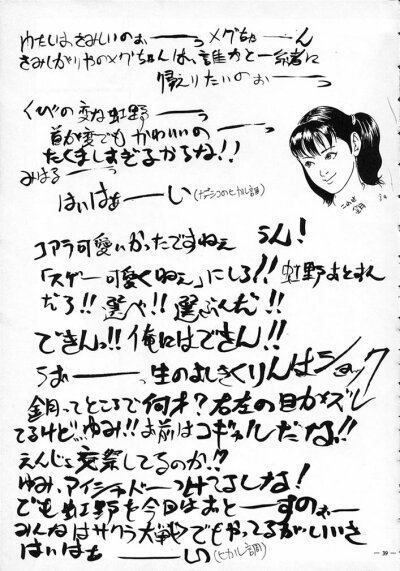 わたしは、さみしいのぉーーっ メグちゃーん
さみしがりやのメグちゃんは、誰かと一緒に
帰えりたいのぉーー
くびの変な虹野ーー
首が変でも かわいいのーー
たくましすぎるかるな!!
みはるーー
はいはぁーーい(
のヒカル調)
コアラ可愛いかったですねぇ うん!
「スゲー可愛くねぇ」にしろ!! 虹野まとすん
だろ!! 選べ!! 選ぶんだ!!
できんっ!! 俺にはできん!!
うぉーーっ 生のよしきくりんはショック
ところで何才? 右左の目がズレ
てるけど…ゆみ!! お前はコギャルだな!!
えんじょ交祭してるのか!?
ゆみ、アイシャドーつけてるしな!
でも虹野を今日はおとーすのぉー
みんなはサクラ大戦でもやってるがいいさ
はいはぁーーい(ヒカル調)
— 39 —